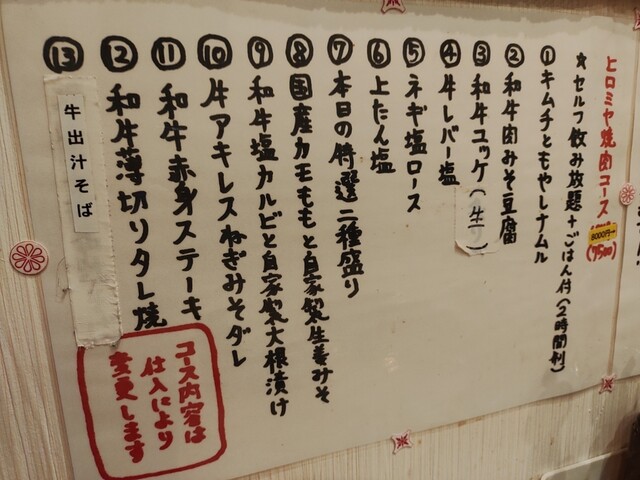 ヒロミヤ焼肉コース
8000円
(7500)
★セルフ飲み放題+ごはん付(2時間制)
①キムチともやしナムル
②和牛肉みそ豆腐
③和牛ユッケ(生)
④牛レバー塩
⑤ネギ塩ロース
⑥上たん塩
⑦本日の特選二種盛り
⑧国産カモももと自家製生姜みそ
⑨和牛塩カルビと自家製大根漬け
⑩牛アキレスねぎみそダレ
⑪和牛赤身ステーキ
⑫和牛薄切りタレ焼
⑬牛出汁そば
コース内容は
仕入により
変更します